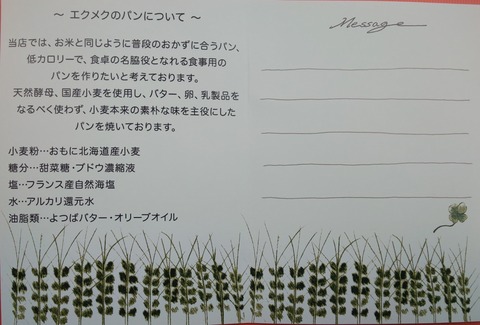 ～ エクメクのパンについて ～
当店では、お米と同じように普段のおかずに合うパン、
低カロリーで、食卓の名脇役となれる食事用の
パンを作りたいと考えております。
天然酵母、国産小麦を使用し、バター、卵、乳製品を
なるべく使わず、小麦本来の素朴な味を主役にした
パンを焼いております。
小麦粉…おもに北海道産小麦
糖分…甜菜糖・ブドウ濃縮液
塩…フランス産自然海塩
水…アルカリ還元水
油脂類…よつばバター・オリーブオイル
Message